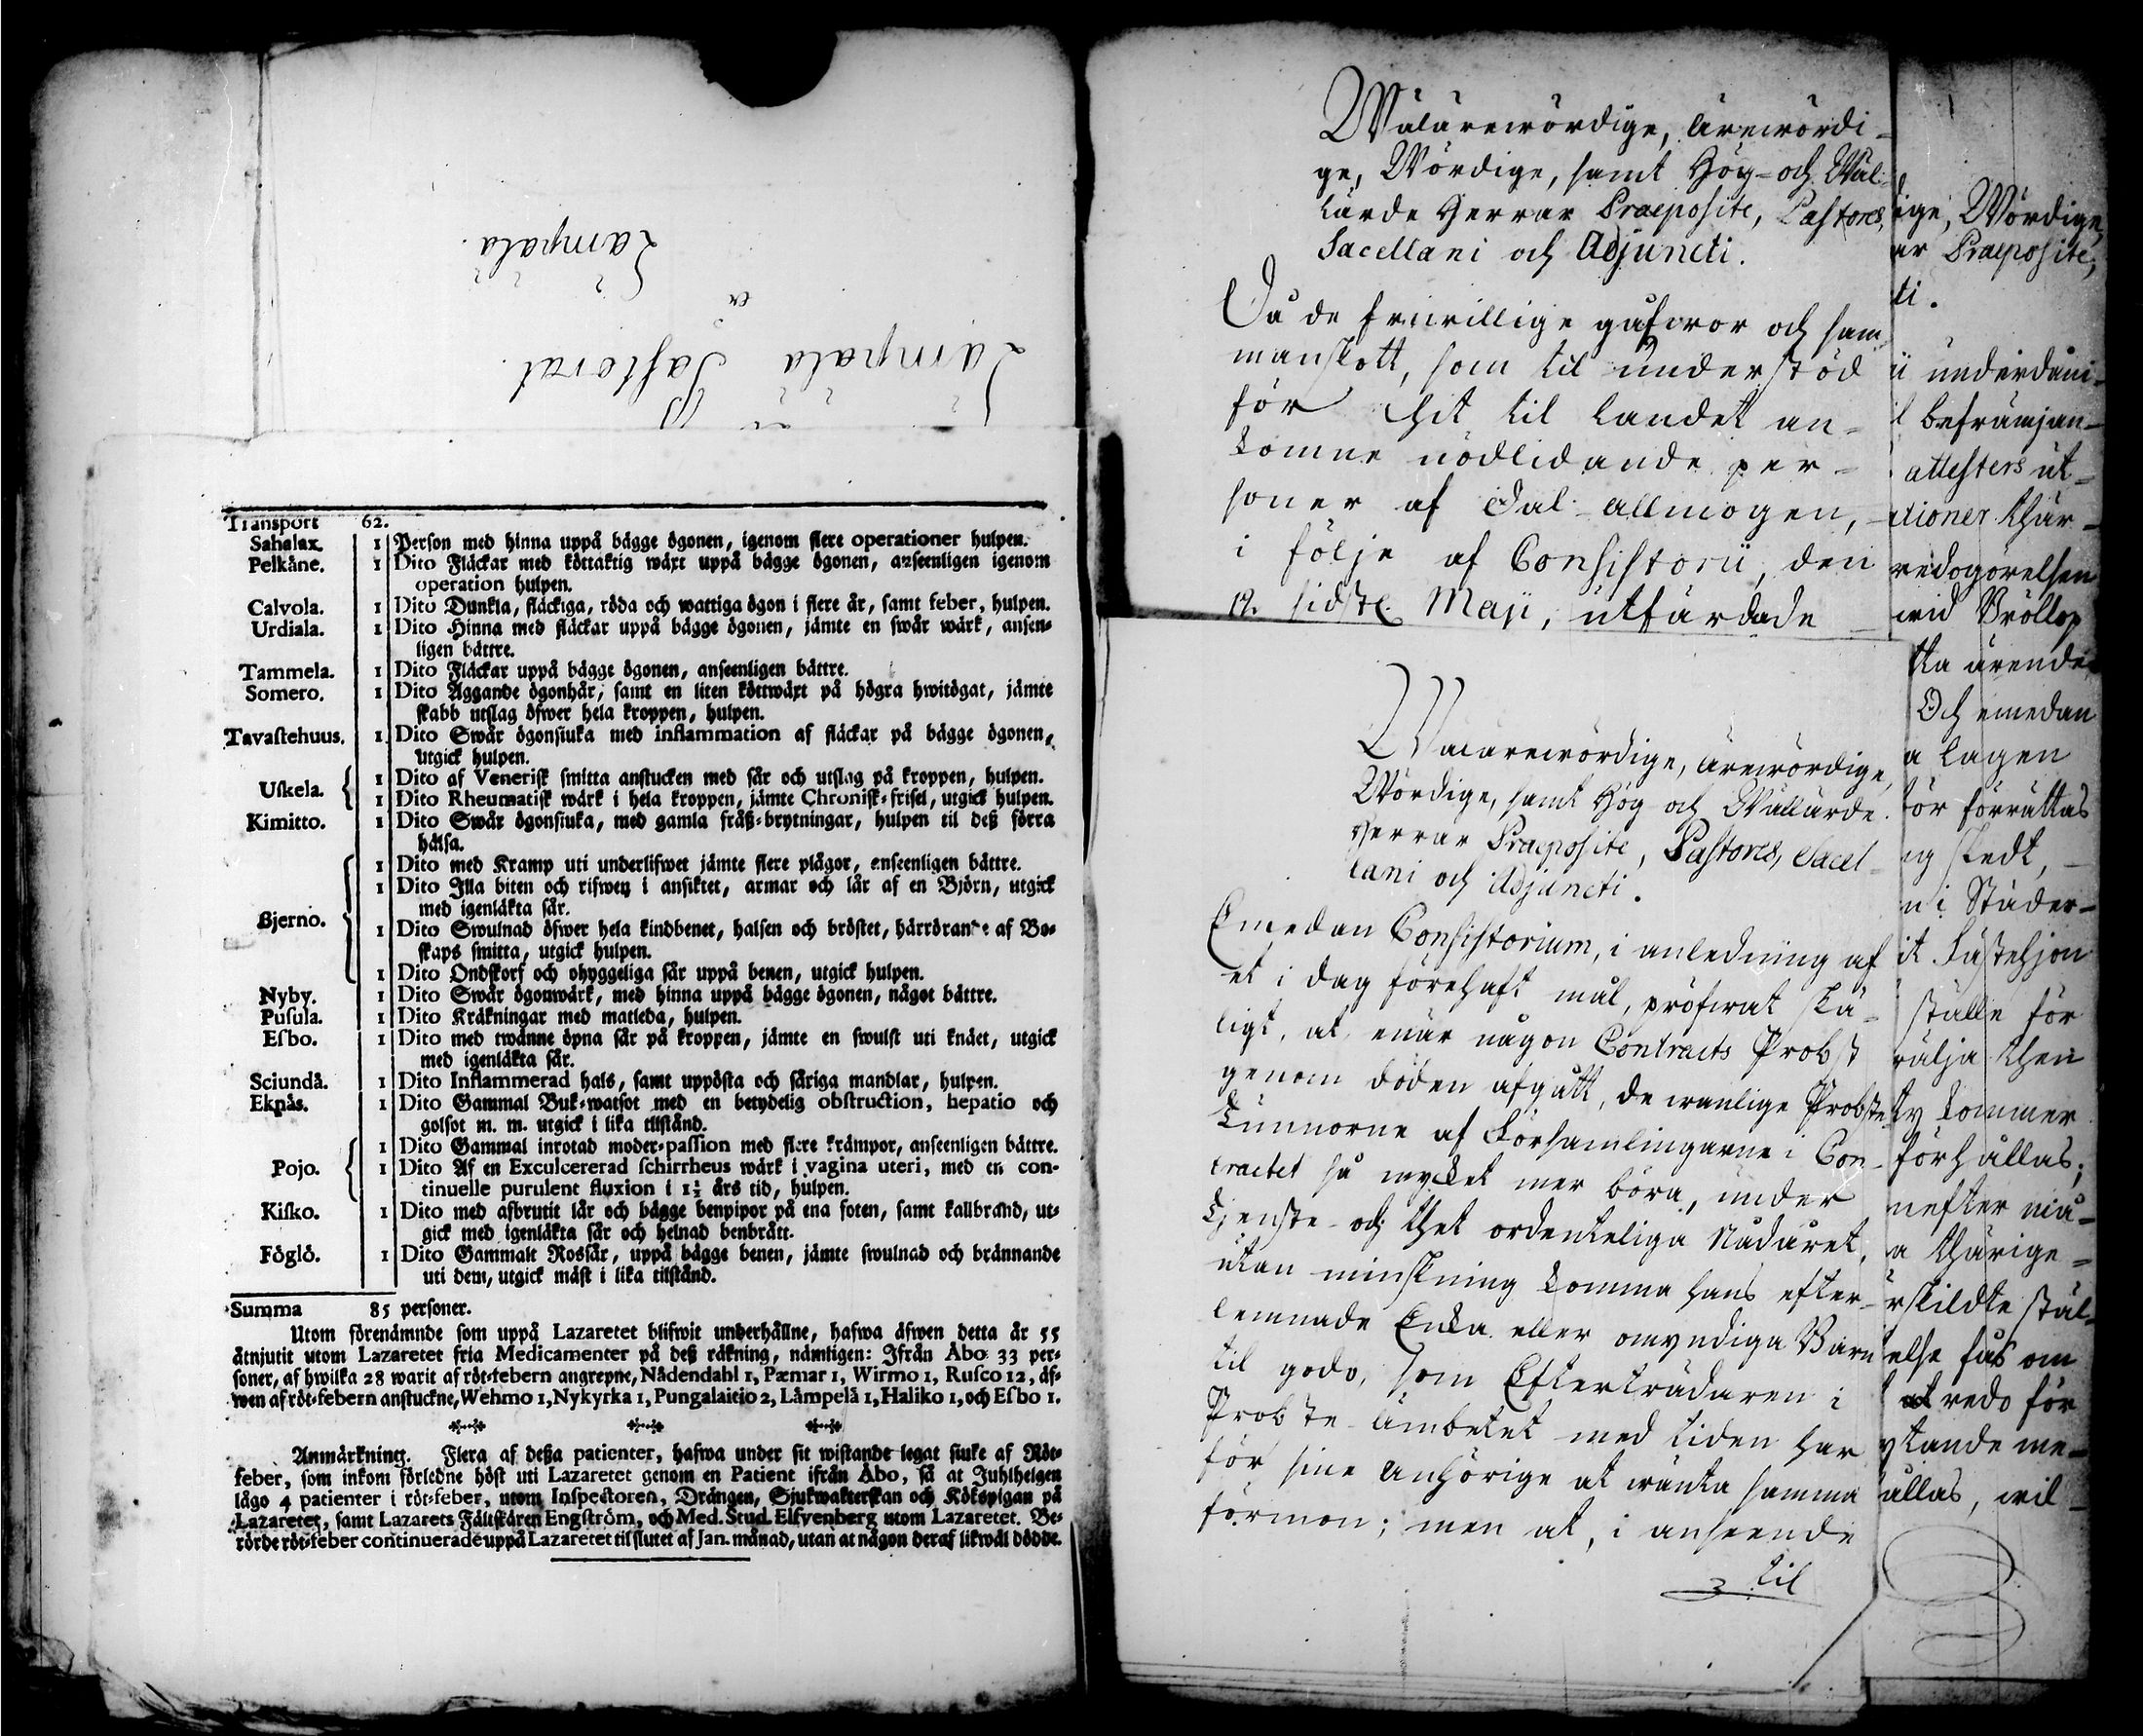 Lämpälä.
a
Lämpälä Pastorat.
Transport 62.
Sahalax. 1 Person med hinna uppå bägge ögonen, igenom flere operationer hulpen.
Pelkäne. 1 Dito Fläckar med köttaktig wäxt uppå bägge ögonen, anseenligen igenom
operation hulpen.
Calvola. 1 Dito Dunkla, fläckiga, röda och wattiga ögon i flere år, samt feber, hulpen.
Urdiala. 1 Dito Hinna med fläckar uppå bägge ögonen, jämte en swår wärk, ansen-
ligen bättre.
Tammela. 1 Dito Fläckar uppå bägge ögonen, anseenligen bättre.
Somero. 1 Dito Aggande ögonhår, samt en liten köttwäxt på högra hwitögat, jämte
skabb utslag öfwer hela kroppen, hulpen.
Tavastehuus. 1 Dito Swår ögonsiuka med inflammation af fläckar på bägge ögonen,
utgick hulpen.
Uskela. 1 Dito af Venerisk smitta anstucken med sår och utslag på kroppen, hulpen.
1 Dito Rheumatisk wärk i hela kroppen, jämte Chronisk-frisel, utgick hulpen.
Kimitto. 1 Dito Swår ögonsiuka, med gamla fräß-brytningar, hulpen til deß förra
hälsa.
Bjerno. 1 Dito med Kramp uti underlifwet jämte flere plågor, anseenligen bättre.
1 Dito Illa biten och rifwen i ansiktet, armar och lår af en Björn, utgick
med igenläkta sår.
1 Dito Swulnad öfwer hela kindbenet, halsen och bröstet, härrörande af Bo-
skaps smitta, utgick hulpen.
1 Dito Ondskorf och ohyggeliga sår uppå benen, utgick hulpen.
Nyby. 1 Dito Swår ögonwärk, med hinna uppå bägge ögonen, något bättre.
Pusula. 1 Dito Kräkningar med matleda, hulpen.
Esbo. 1 Dito med twänne öpna sår på kroppen, jämte en swulst uti knäet, utgick
med igenläkta sår.
Sciundå. 1 Dito Inflammerad hals, samt uppösta och såriga mandlar, hulpen.
Eknäs. 1 Dito Gammal Buk-watsot med en betydelig obstruction, hepatio och
golsot m. m. utgick i lika tilstånd.
Pojo. 1 Dito Gammal inrotad moder-passion med flere krämpor, anseenligen bättre.
1 Dito Af en Exculcererad schirrheus wärk i vagina uteri, med en con-
tinuelle purulent fluxion i 1½ års tid, hulpen.
Kisko. 1 Dito med afbrutit lår och bägge benpipor på ena foten, samt kallbrand, ut-
gick med igenläkta sår och helnad benbrått.
Föglö. 1 Dito Gammalt Rossår, uppå bägge benen, jämte swulnad och brännande
uti dem, utgick mäst i lika tilstånd.
Summa 85 personer.
Utom förenämnde som uppå Lazaretet blifwit underhållne, hafwa äfwen detta år 55
åtnjutit utom Lazaretet fria Medicamenter på deß räkning, nämligen: Ifrån Åbo 33 per-
soner, af hwilka 28 warit af röt-febern angrepne, Nådendahl 1, Pæmar 1, Wirmo 1, Rusco 12, äf-
wen af röt-febern anstuckne, Wehmo 1, Nykyrka 1, Pungalaitio 2, Lämpelä 1, Haliko 1, och Esbo 1.
Anmärkning. Flera af deßa patienter, hafwa under sit wistande legat siuke af Röt-
feber, som inkom förledne höst uti Lazaretet genom en Patient ifrån Åbo, så at Juhlhelgen
lågo 4 patienter i röt-feber, utom Inspectoren, Drängen, Sjukwakterskan och Kökspigan på
Lazaretet, samt Lazarets Fältskären Engström, och Med. Stud. Elfvenberg utom Lazaretet. Be-
rörde röt-feber continuerade uppå Lazaretet til slutet af Jan. månad, utan at någon deraf likwäl dödde.
Wälärewördige, Ärewördi-
ge, Wördige, samt Hög- och Wäl-
lärde Herrar Praeposite, Pastores,
Sacellani och Adjuncti.
Då de friwillige gåfwor och sam-
manskott, som til understöd
för hit til landet an-
komne nödlidande per-
soner af Dal-allmogen,
i följe af Consistorii, den
19. sidstl. Maji, utfärdade
Wälärewördige, Ärewördige,
Wördige, samt Hög- och Wällärde
Herrar Praeposite, Pastores, Sacel-
lani och Adjuncti.
Emedan Consistorium, i anledning af
et i dag förehaft mål, pröfwat skä-
ligt, at, enär någon Contracts Probst
genom döden afgått, de wanlige Probste-
Tunnorne af Församlingarne i Con-
tractet så mycket mer böra, under
Tjenste- och thet ordenteliga Nådåret,
utan minskning komma hans efter-
lemnade Enka eller omyndiga Barn
til godo, som Efterträdaren i
Probste-Ämbetet med tiden har
för sine anhörige at wänta samma
förmon; men at, i anseende
til
ige, Wördige,
ar Praeposite,
ti.
ii underdåni-
l befrämjan-
attesters ut-
ctioner thär-
redogörelsen
wid Bröllop
tta ärende
Och emedan
a lagen
för förrättas
ng skedt,
n i Städer-
it. Fästehjon
ställe för
wälja then
ty kommer
förhållas;
nefter mu-
a thärige-
rskildte stäl-
else fås om
redo för
ystande me-
ållas, wil-